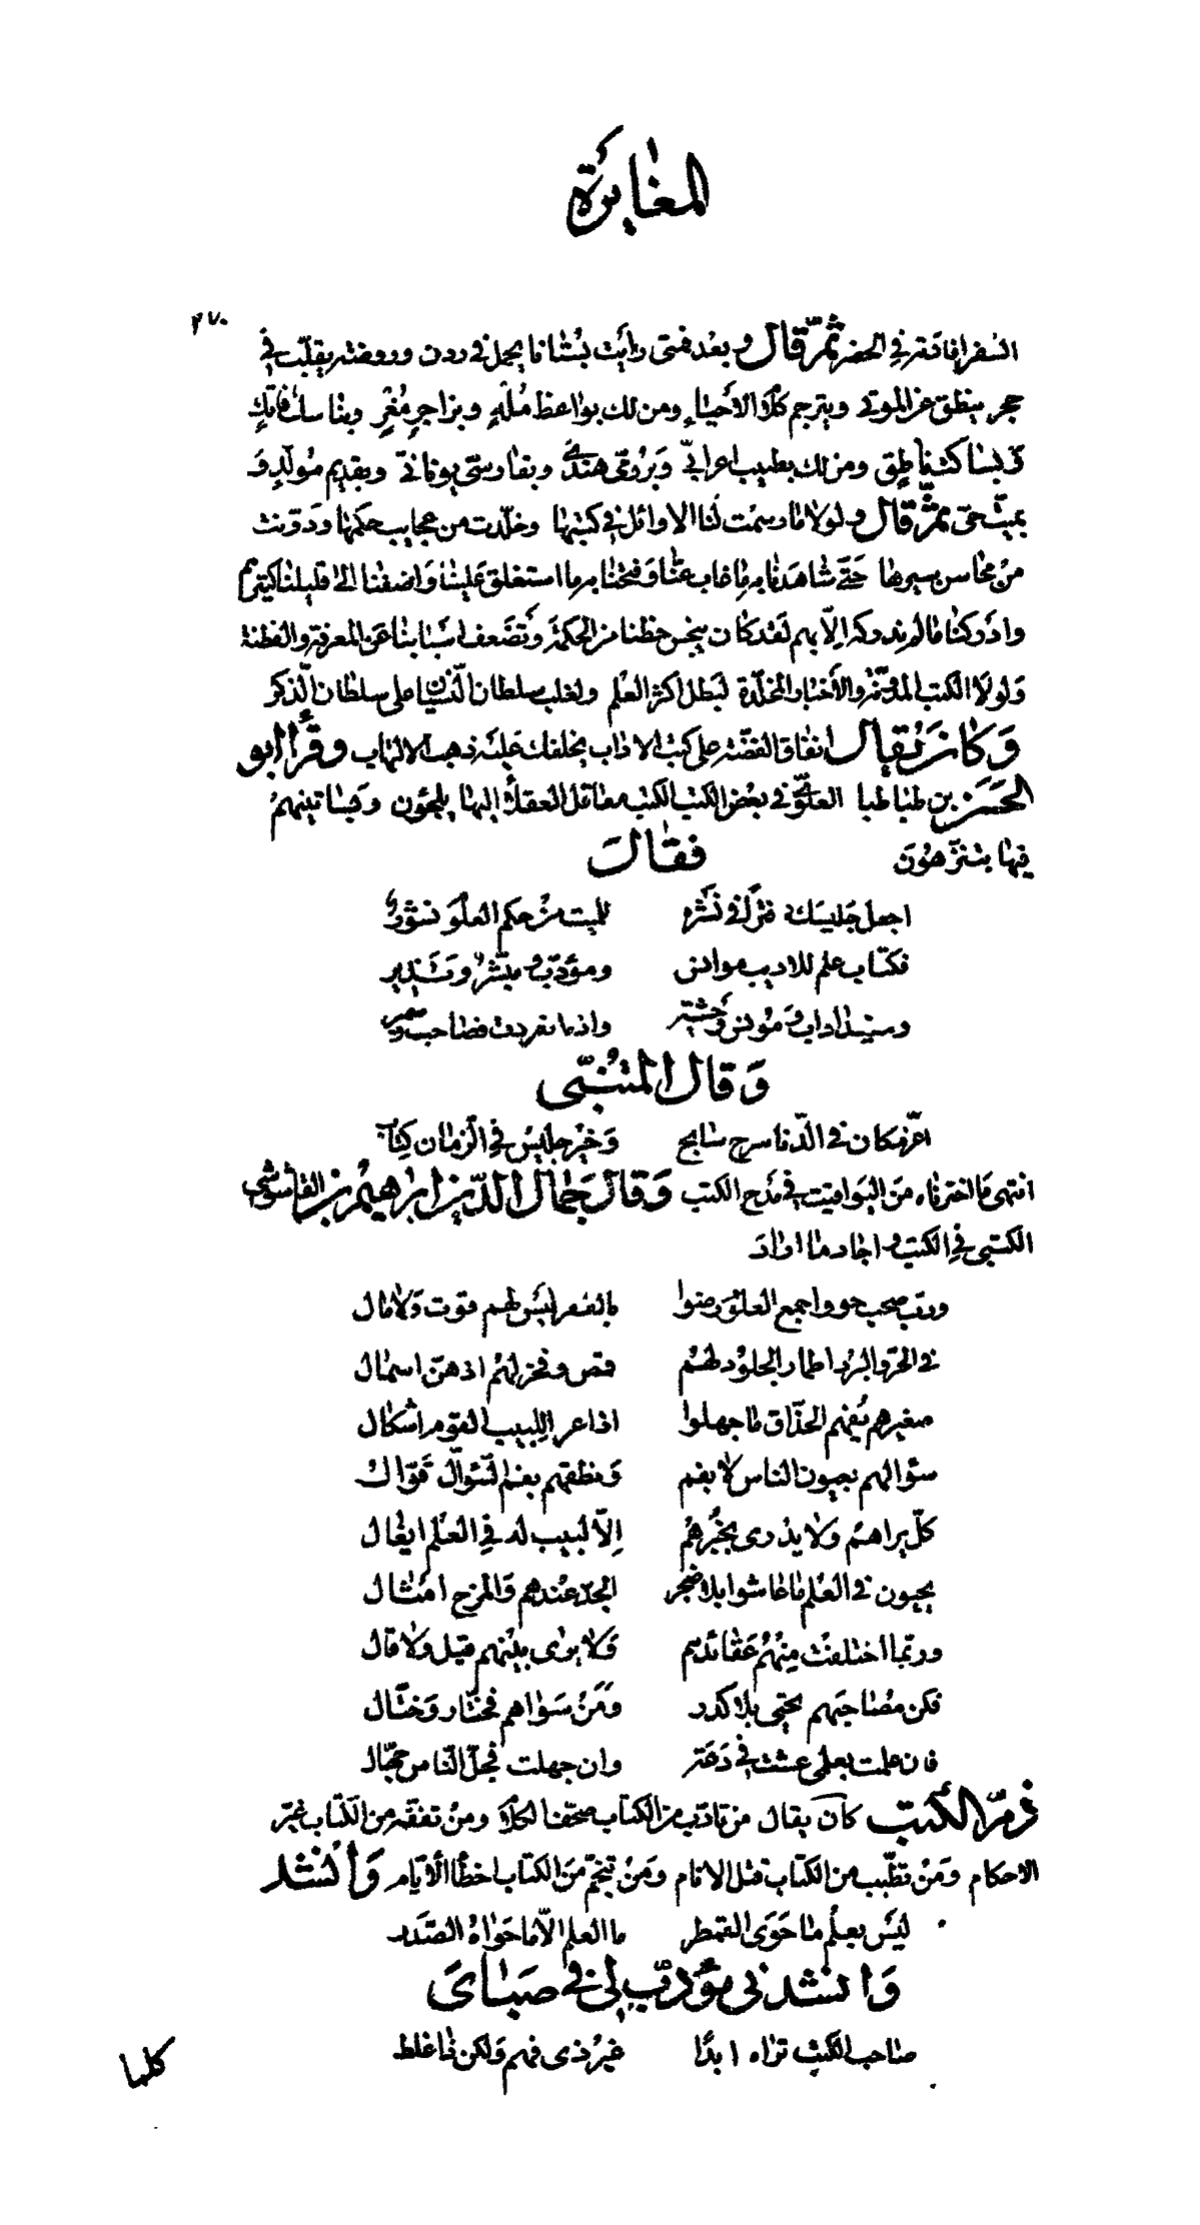 المغايرة
٢٧٠
السفر افادته في الحضر ثمّ قال وبعد فمتى رأيت بستانا يحمل في ردن وروضة يقلّب في
حجر ينطق عن الموتى ويترجم كلام الأحياء ومن لك بواعظ مُلْهٍ وبزاجرٍ مُغْرٍ وبناسك فاتكٍ
وبساكت ناطق ومن لك بطبيب اعرابيّ وَبرُوميّ هنديّ وبفارسي يونانيّ وبقديم مولّدٍ وَ
بميّت حيّ ثمّ قال ولولا ما رسمت لنا الاوائل في كتبها وخلّدت من عجايب حكمها ودَوّنت
من محاسن سيرها حَتّى شاهدنا به ما غاب عنّا وَفتحنا به ما استغلق عَلينا وَاضفنا الى قليلنا كثيرهم
وادركنا ما لم ندركه اِلّا بهم لَقد كان يبخس حظنا من الحكمة وَتضعف اسبابنا عن المعرفة والفطنة
وَلولا الكتب المدوّنة والأخبار المخلّدة لبَطل اكثر العلم ولغلب سلطان النّسيان على سلطان الذكر
وَكانَ يُقال انفاق الفضّة على كتب الاداب يخلفك عليه ذهب الالباب وقرأ ابو
الحسَن بن طباطبا العلويّ في بعض الكتب الكتب معاقل العقلاء إليها يلجئون وبساتينهم
فيها يتنزّهون فقالَ
اجعل جليسك دفترًا في نشره للميت من حكم العلوم نشورُ
فكتاب علم للاديب موانس ومؤدّب ومبشّر وَنذير
ومفيد اداب وَمُونس وَحشةٍ واذا ما تفردت فصاحب وسمير
وَقال المتنبّى
اعزّ مكان في الدّنا سرج سابح وَخير جليس في الزمان كتاب
انتهى ما اخترناه من اليواقيت في مدح الكتب وَقالَ جمال الدّين ابراهيم بن الفاشوشي
الكتبي في الكتب واجاد ما اراد
وربّ صحب حووا جمع العلوم رضوا بالفقر ليس لهم قوت وَلا مال
في الحرّ والبرد اطمار الجلود لهم قمص وفخر لهُم اذ هنّ اسمال
صغيرهم يُفهم الحذّاق ما جهلوا اذا عرا اللبيب القوم اشكال
سؤالهم بعيون الناس لا بفم وَنطقهم بفم السّوّال قَوّال
كلّ يراهم وَلا يدرى بخُبرهم اِلّا لبيب له في العلم ايغال
يحيون في العلم ما عاشوا بلا ضجر الجدّ عندهم وَالمزح امثال
وربّما اختلفت منهُم عَقائدهم وَلا يرى بينهم قيل وَلا قال
فكن مصاحبهم تحيى بلا كدر وَمَنْ سَواهم فختّار وَختّال
فان علمت بعلمى عشت في دَعَة وان جهلت فجلّ النّاس جهّال
ذمّ الكتب كان يقال من تادّب من الكتاب صحّف الكلام ومن تفقّه من الكتاب غيّر
الاحكام وَمَنْ تطبّب من الكتاب قتل الانام وَمَنْ تنجّم مَن الكتاب اخطأ الأيّام وَأُنشد
ليَس بعلْم ما حَوَى القمطر ما العلم الّا ما حَواهُ الصّدر
وَانشدني مؤدّب لي في صباي
صاحب الكتب تراه ابدًا غيرُ ذى فهم وَلكن ذا غلط
كلما